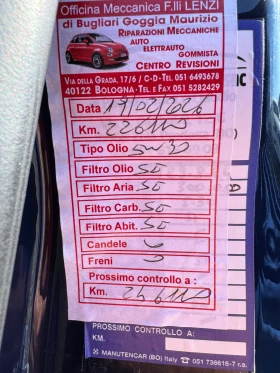 Officina Meccanica F.lli LENZI
di Bugliari Goggia Maurizio
RIPARAZIONI MECCANICHE
AUTO
ELETTRAUTO
GOMMISTA
CENTRO REVISIONI
VIA DELLA GRADA, 17/6 / C-D-TEL. 051 6493678
40122 BOLOGNA - TEL. E FAX 051 5282429
Data 17/02/2026
Km.
Tipo Olio 5W30
Filtro Olio SI
Filtro Aria SI
Filtro Carb. SI
Filtro Abit. SI
Candele
Freni
Prossimo controllo a :
Km.
PROSSIMO CONTROLLO A:
KM.
MANUTENCAR (BO) Italy ☎ 051 736616-7 r.a.